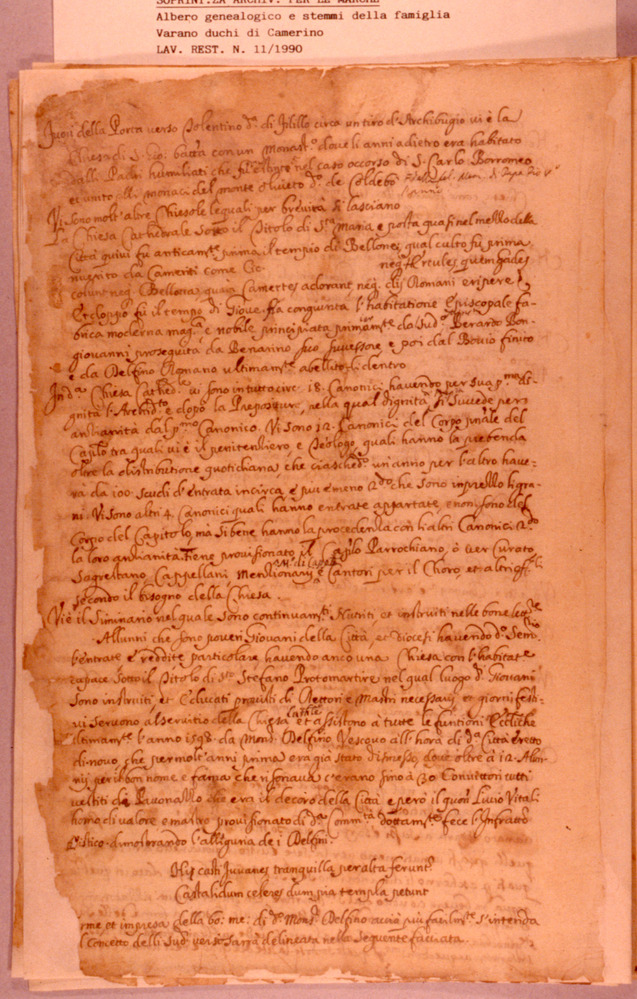 SOPRINT.ZA ARCHIV. PER LE MARCHE
Albero genealogico e stemmi della famiglia
Varano duchi di Camerino
LAV. REST. N. 11/1990
fuori della Porta verso Tolentino d.ª di circa un tiro d'Archibugio vi è la
Chiesa di S. con un Monast.º dove li anni adietro era habitato
dalli Padri humiliati che nel caso occorso di S. Carlo Borromeo
et unito alli monaci del monte oliveto
Vi sono molt'altre Chiesole le quali per brevità si lasciano
La Chiesa Cathedrale sotto il Titolo di S.ta Maria è posta quasi nel mezzo della
Città quivi fu anticam.te prima il tempio de Bellone, qual culto fu prima
da Camerti come Cic. neq. Hercules
colunt neq. Bellona quia Camertes adorant neq. dij Romani eripere
fu il tempio di Giove. Ha congiunta l'habitatione Episcopale fa-
brica moderna mag.ca e nobile principiata primam.te da Berardo Bon-
giovanni proseguita da suo successore e poi dal Bovio finito
e da Delfino Romano ultimam.te abellito di dentro
In d.ª Chiesa Cathed.le vi sono in tutto circ. 18. Canonici havendo per sua p.ma di-
gnità l'Archid.to e dopo la Prepositura, nella qual dignità si succede per
antianità dal p.mo Canonico. Vi sono 12. Canonici del Corpo del
Cap.lo tra quali vi è il penitentiero, e Teologo, quali hanno la prebenda
oltre la distributione quotidiana, che ciasched.º un anno per l'altro have-
rà da 100. scudi d'entrata incirca, e più e meno 2.do che sono in prezzo li gra-
ni. Vi sono altri 4 Canonici quali hanno entrate appartate, e non sono del
Corpo del Capitolo, ma si bene hanno la precedenza con li altri Canonici 2.do
la loro antianità. Tiene provisionato il Cap.lo Parrochiano, ò ver Curato
Sagrestano, Cappellani Mentionarij M.º di Cap.la e Cantori per il Choro, et altri off.li
secondo il bisogno della Chiesa.
Vi è il Siminario nel quale sono continuam.te Nutriti et instruiti nelle bone
Allunni che sono poveri Giovani della Città, et Diocesi havendo d.º Sem.
l'entrate e reddite particolare havendo anco una Chiesa con l'habitat.e
capace sotto il Titolo di S.to Stefano Protomartire nel qual luogo d.i Giovani
sono instruiti et educati provisti di Rettori e Mastri necessarij et giorni festi-
vi servono al servitio della Chiesa Cath.le et assistono à tutte le funtioni Ecc.liche
Ultimam.te l'anno 1598. da Mons. Delfino Vescovo all'hora di d.ª Città eretto
di novo, che per molt'anni prima era già stato dimesso, dove oltre à 12. Alun-
nij per il bon nome e fama che risonava c'erano sino à 30 Convittori tutti
vestiti di Pavonazzo che era il decoro della Città e però il quon. Livio Vitali
homo di valore e mastro provisionato di d.ª Comm.tà dottam.te fece l'Infras.to
Distico dimostrando l'all'eguria de i Delfini.
His casti Juvenes tranquilla per alta ferunt.r
Castalidum celeres dum pia templa petunt
me et impresa della bo: me: di d.º Mons. Delfino acciò più facilm.te s'intenda
l Concetto delli sud.i versi sarrà delineata nella seguente facciata.